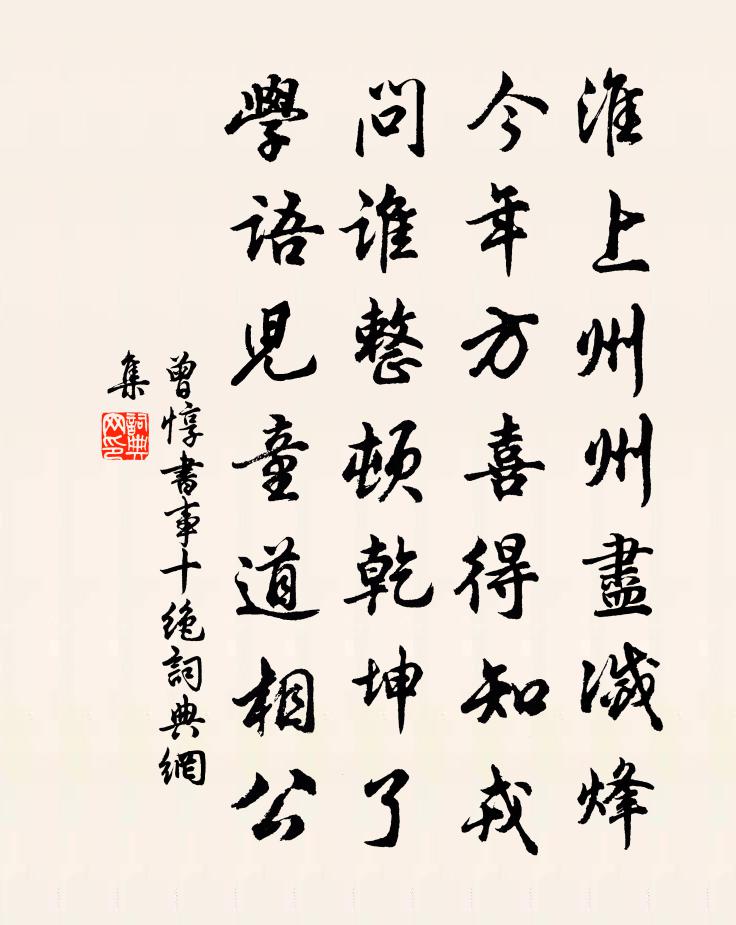 淮上州州盡滅烽
今年方喜得知戎
問誰整頓乾坤了
學語兒童道相公
曾惇書事十绝詞典網
集
詞典
网印